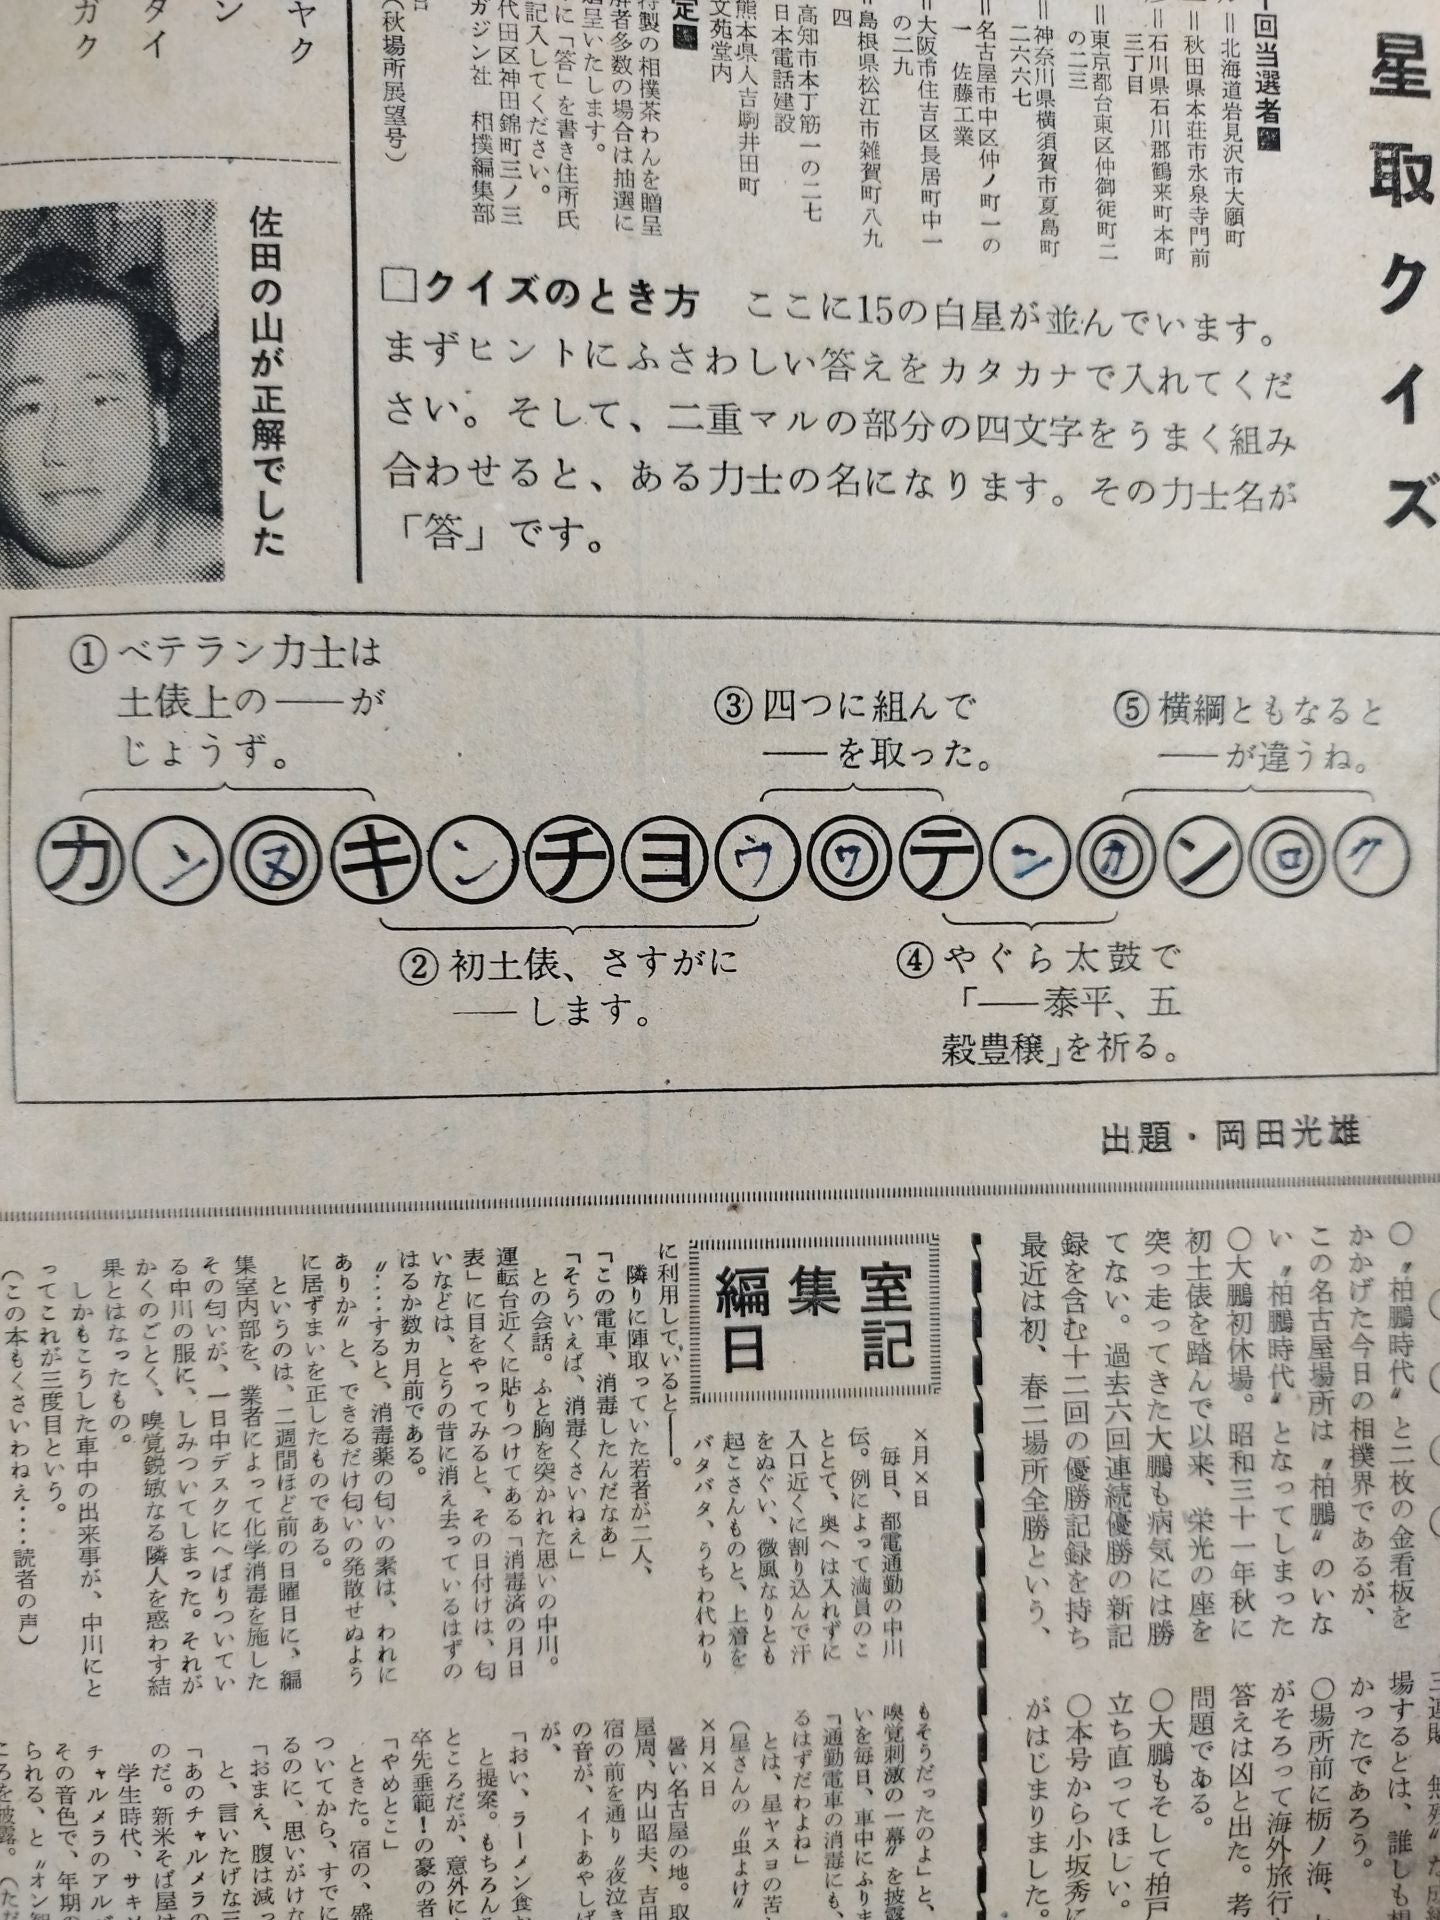 星取クイズ
回当選者
＝北海道岩見沢市大願町
＝秋田県本荘市永泉寺門前
＝石川県石川郡鶴来町本町
三丁目
＝東京都台東区仲御徒町二
の二三
＝神奈川県横須賀市夏島町
二六六七
＝名古屋市中区仲ノ町一の
一　佐藤工業
＝大阪市住吉区長居町中一
の二九
＝島根県松江市雑賀町八九
四
高知市本丁筋一の二七
日本電話建設
熊本県人吉駒井田町
文苑堂内
定
特製の相撲茶わんを贈呈
解者多数の場合は抽選に
贈呈いたします。
に「答」を書き住所氏
記入してください。
代田区神田錦町三ノ三
ガジン社　相撲編集部
（秋場所展望号）
ヤク
ン
タイ
ガク
佐田の山が正解でした
□クイズのとき方　ここに15の白星が並んでいます。
まずヒントにふさわしい答えをカタカナで入れてくだ
さい。そして、二重マルの部分の四文字をうまく組み
合わせると、ある力士の名になります。その力士名が
「答」です。
①ベテラン力士は
土俵上の――が
じょうず。
③四つに組んで
――を取った。
⑤横綱ともなると
――が違うね。
カンヌキンチヨウワテンカンロク
②初土俵、さすがに
――します。
④やぐら太鼓で
「――泰平、五
穀豊穣」を祈る。
出題・岡田光雄
○〝柏鵬時代〟と二枚の金看板を
かかげた今日の相撲界であるが、
この名古屋場所は〝柏鵬〟のいな
い〝柏鵬時代〟となってしまった
○大鵬初休場。昭和三十一年秋に
初土俵を踏んで以来、栄光の座を
突っ走ってきた大鵬も病気には勝
てない。過去六回連続優勝の新記
録を含む十二回の優勝記録を持ち
最近は初、春二場所全勝という、
場するとは、誰しも
かったであろう。
○場所前に栃ノ海、
がそろって海外旅行
答えは凶と出た。考
問題である。
○大鵬もそして柏戸
立ち直ってほしい。
○本号から小坂秀に
がはじまりました。
編集室日記
×月×日
毎日、都電通勤の中川
伝。例によって満員のこ
とて、奥へは入れずに
入口近くに割り込んで汗
をぬぐい、微風なりとも
起こさんものと、上着を
バタバタ、うちわ代わり
に利用していると――。
隣りに陣取っていた若者が二人、
「この電車、消毒したんだなあ」
「そういえば、消毒くさいねえ」
との会話。ふと胸を突かれた思いの中川。
運転台近くに貼りつけてある「消毒済の月日
表」に目をやってみると、その日付けは、匂
いなどは、とうの昔に消え去っているはずの
はるか数カ月前である。
〝‥‥すると、消毒薬の匂いの素は、われに
ありか〟と、できるだけ匂いの発散せぬよう
に居ずまいを正したものである。
というのは、二週間ほど前の日曜日に、編
集室内部を、業者によって化学消毒を施した
その匂いが、一日中デスクにへばりついてい
る中川の服に、しみついてしまった。それが
かくのごとく、嗅覚鋭敏なる隣人を惑わす結
果とはなったもの。
しかもこうした車中の出来事が、中川にと
ってこれが三度目という。
（この本もくさいわねえ‥‥読者の声）
もそうだったのよ」と、
嗅覚刺激の一幕〟を披露
いを毎日、車中にふりま
「通勤電車の消毒にも、
るはずだわよね」
とは、星ヤスヨの苦
（星さんの〝虫よけ〟
×月×日
暑い名古屋の地。取
屋周、内山昭夫、吉田
宿の前を通り〝夜泣き
の音が、イトあやしげ
が、
「おい、ラーメン食
と提案。もちろん
ところだが、意外に
卒先垂範！の豪の者
「やめとこ」
ときた。宿の、盛
ついてから、すでに
るのに、思いがけな
「おまえ、腹は減っ
と、言いたげな三
「あのチャルメラの
のだ。新米そば屋は
学生時代、サキソ
チャルメラのアルバ
その音色で、年期の
られる、と〝オン
ころを披露。（ただ